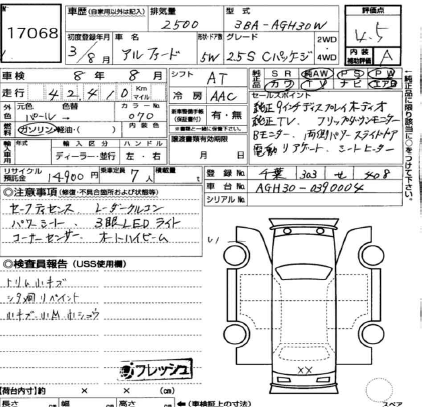 17068
車歴 (自家用以外は記入) 排気量 型式 評価点
2500 3BA-AGH30W 4.5
初度登録年月 車名 形状・ドア数 グレード 2WD 4WD 内装補助評価 A
3/8月 アルファード 5W 2.5S Cパッケージ
車検 8年8月 シフト AT 純正品 SR AW PS PW
走行 42,410 Km マイル 冷房 AAC 装備品 カワ TV ナビ エアB
外色 元色 色替 カラーNo. セールスポイント
パール 070 純正9インチディスプレイオーディオ
燃料 ガソリン・軽油・( ) 内装色 有・無 純正TV、フリップダウンモニター
Bモニター 両側パワースライドドア
輸入車用 年式 輸入区分 ハンドル 譲渡書類有効期限 電動リアゲート シートヒーター
ディーラー・並行 左・右 月 日
純正品に限り該当に○をつけて下さい。
リサイクル預託金 14900円 乗車定員 7人 積載量 登録No. 千葉 303 せ 408
車台No. AGH30-0390004
シリアルNo.
◎注意事項 (修復・不具合箇所および状態等)
セーフティセンス レーダークルコン
パワーシート 3眼LEDライト
コーナーセンサー オートハイビーム
◎検査員報告 (USS使用欄)
トリム小キズ
リペイント
小キズ 小凹
フレッシュ
【荷台内寸】約 × × (cm)
長さ 幅 高さ ←(車検証上の寸法)
××
スペア